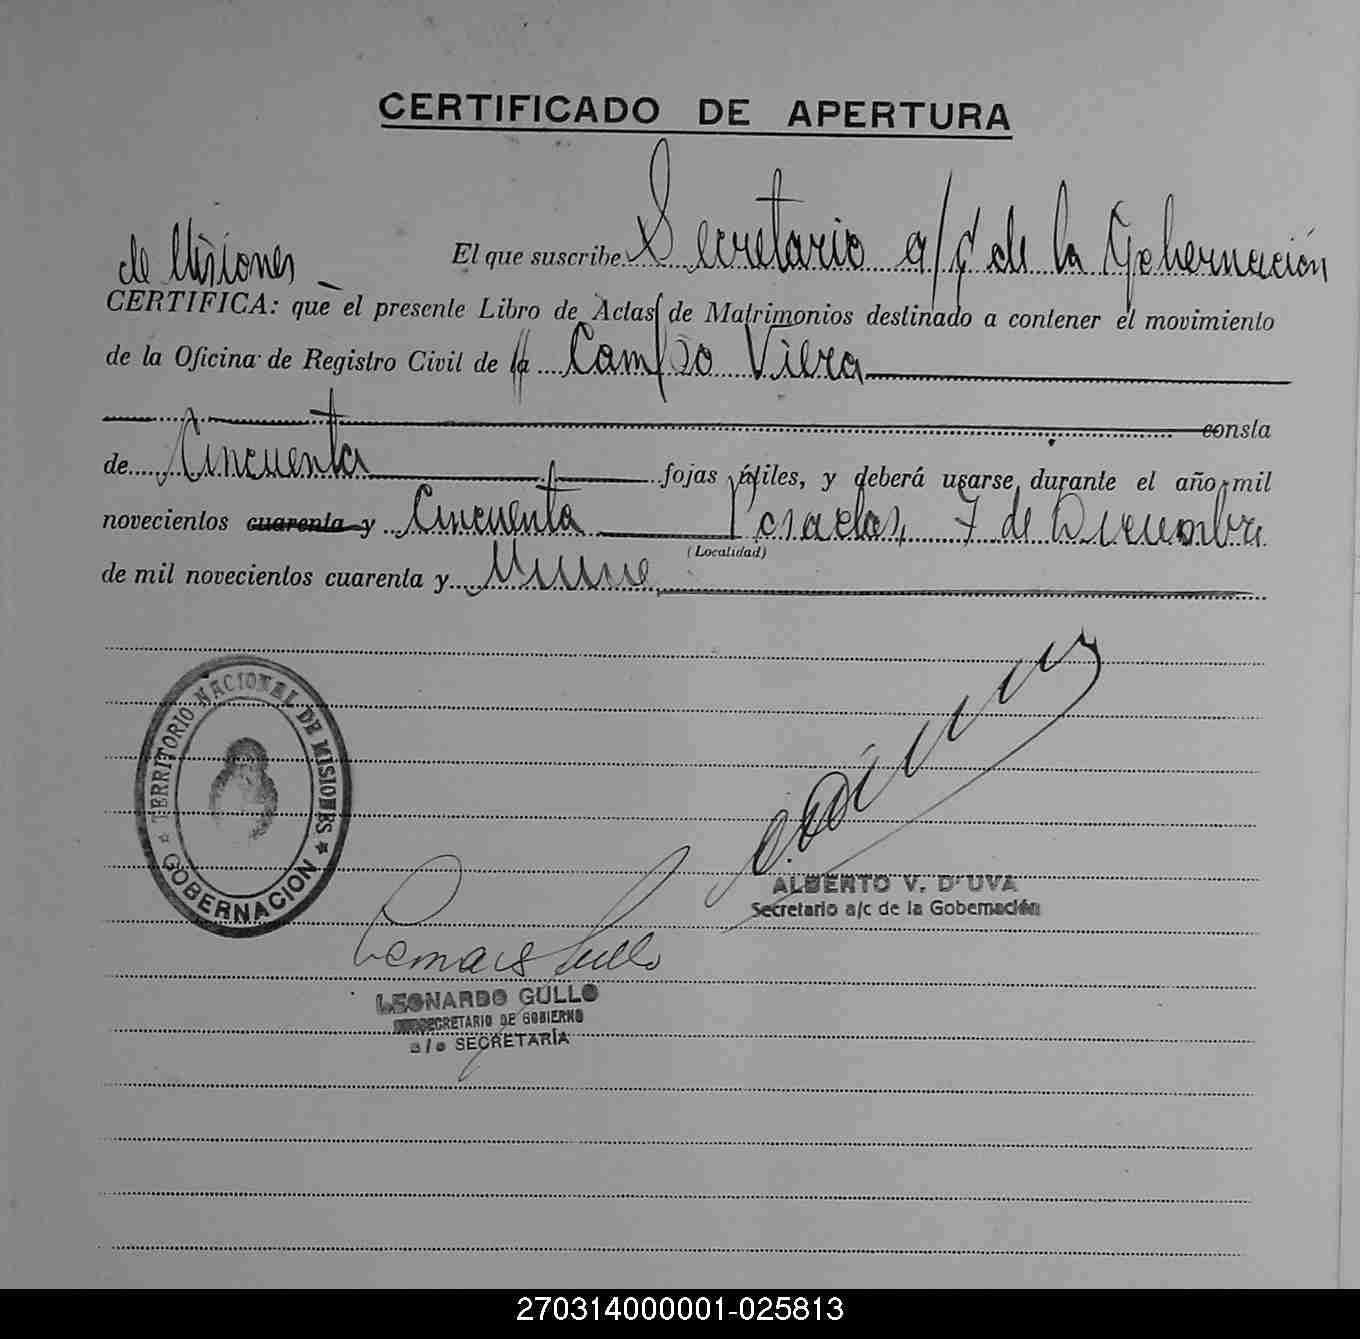 CERTIFICADO DE APERTURA
El que suscribe Secretario a/c de la Gobernación
de Misiones
CERTIFICA: que el presente Libro de Actas de Matrimonios destinado a contener el movimiento
de la Oficina de Registro Civil de la Campo Viera
consta
de Cincuenta fojas útiles, y deberá usarse durante el año mil
novecientos cuarenta y Cincuenta Posadas, 7 de Diciembre
(Localidad)
de mil novecientos cuarenta y Nueve
TERRITORIO NACIONAL DE MISIONES
GOBERNACION
ALBERTO V. D'UVA
Secretario a/c de la Gobernación
LEONARDO GULLO
SUBSECRETARIO DE GOBIERNO
a/c SECRETARÍA
270314000001-025813